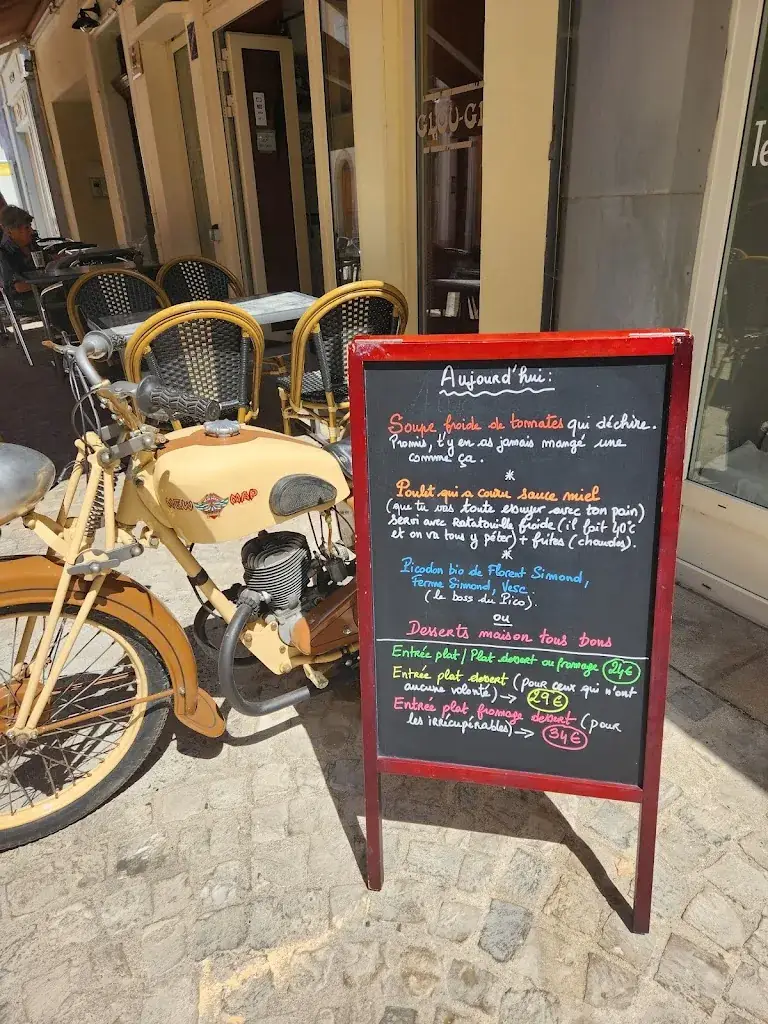 GLOU-GL
Te
NEW MAP
Aujourd'hui:
Soupe froide de tomates qui déchire.
Promis, t'y en as jamais mangé une
comme ça.
*
Poulet qui a couru sauce miel
(que tu vas toute essuyer avec ton pain)
servi avec Ratatouille froide (il fait 40°c
et on va tous y péter) + frites (chaudes).
*
Picodon bio de Florent Simond,
Ferme Simond, Vesc
(le boss du Pico).
ou
Desserts maison tous bons
Entrée plat / Plat dessert ou fromage 24€
Entrée plat dessert (pour ceux qui n'ont
aucune volonté) → 29€
Entrée plat fromage dessert (pour
les irrécupérables) → 34€